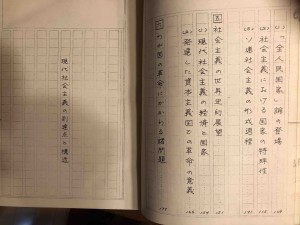 「全人民国家」論の登場
社会主義における国家の特殊性
ソ連社会主義の形成過程
社会主義の世界史的展望
現代社会主義の経済と国家
発達した資本主義国の革命の意義
わが国の革命にかかわる諸問題
現代社会主義の到達点と構造